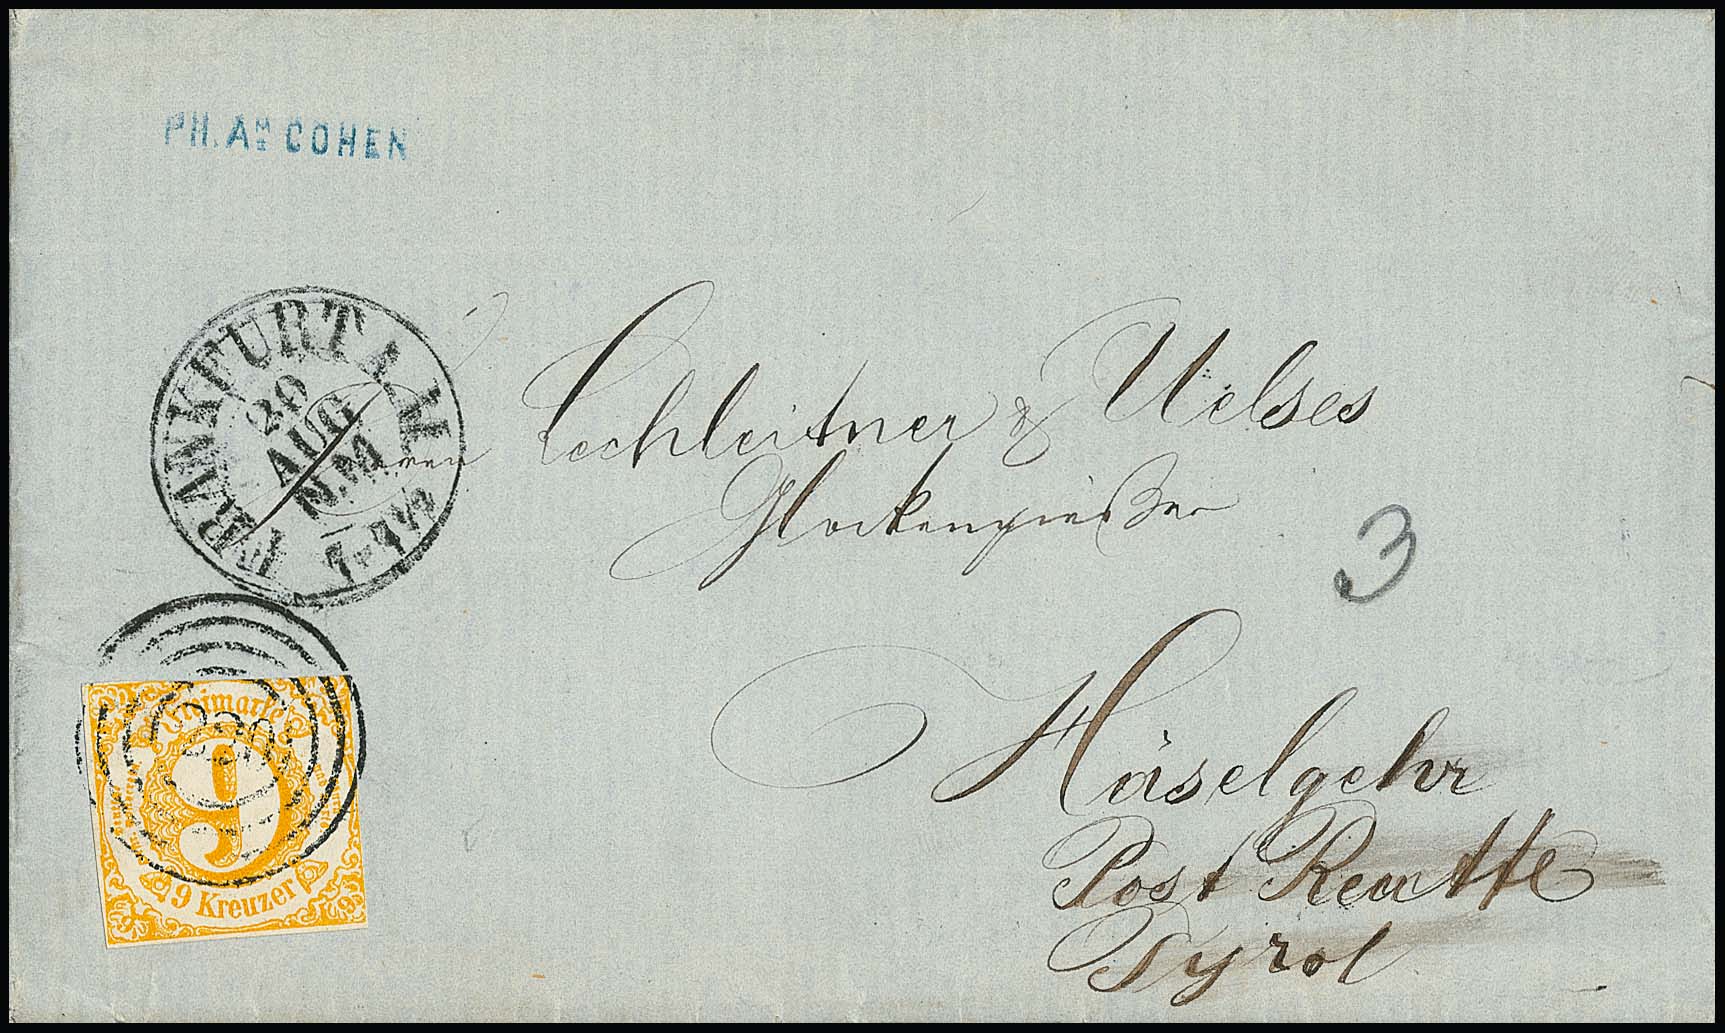 PH. AM COHEN
FRANKFURT A. M.
20
AUG
N.M
Herren Lechleitner & Uelses
Glockengießer
3
Häselgehr
Post Reutte
Tyrol
Freimarke
9
9 Kreuzer